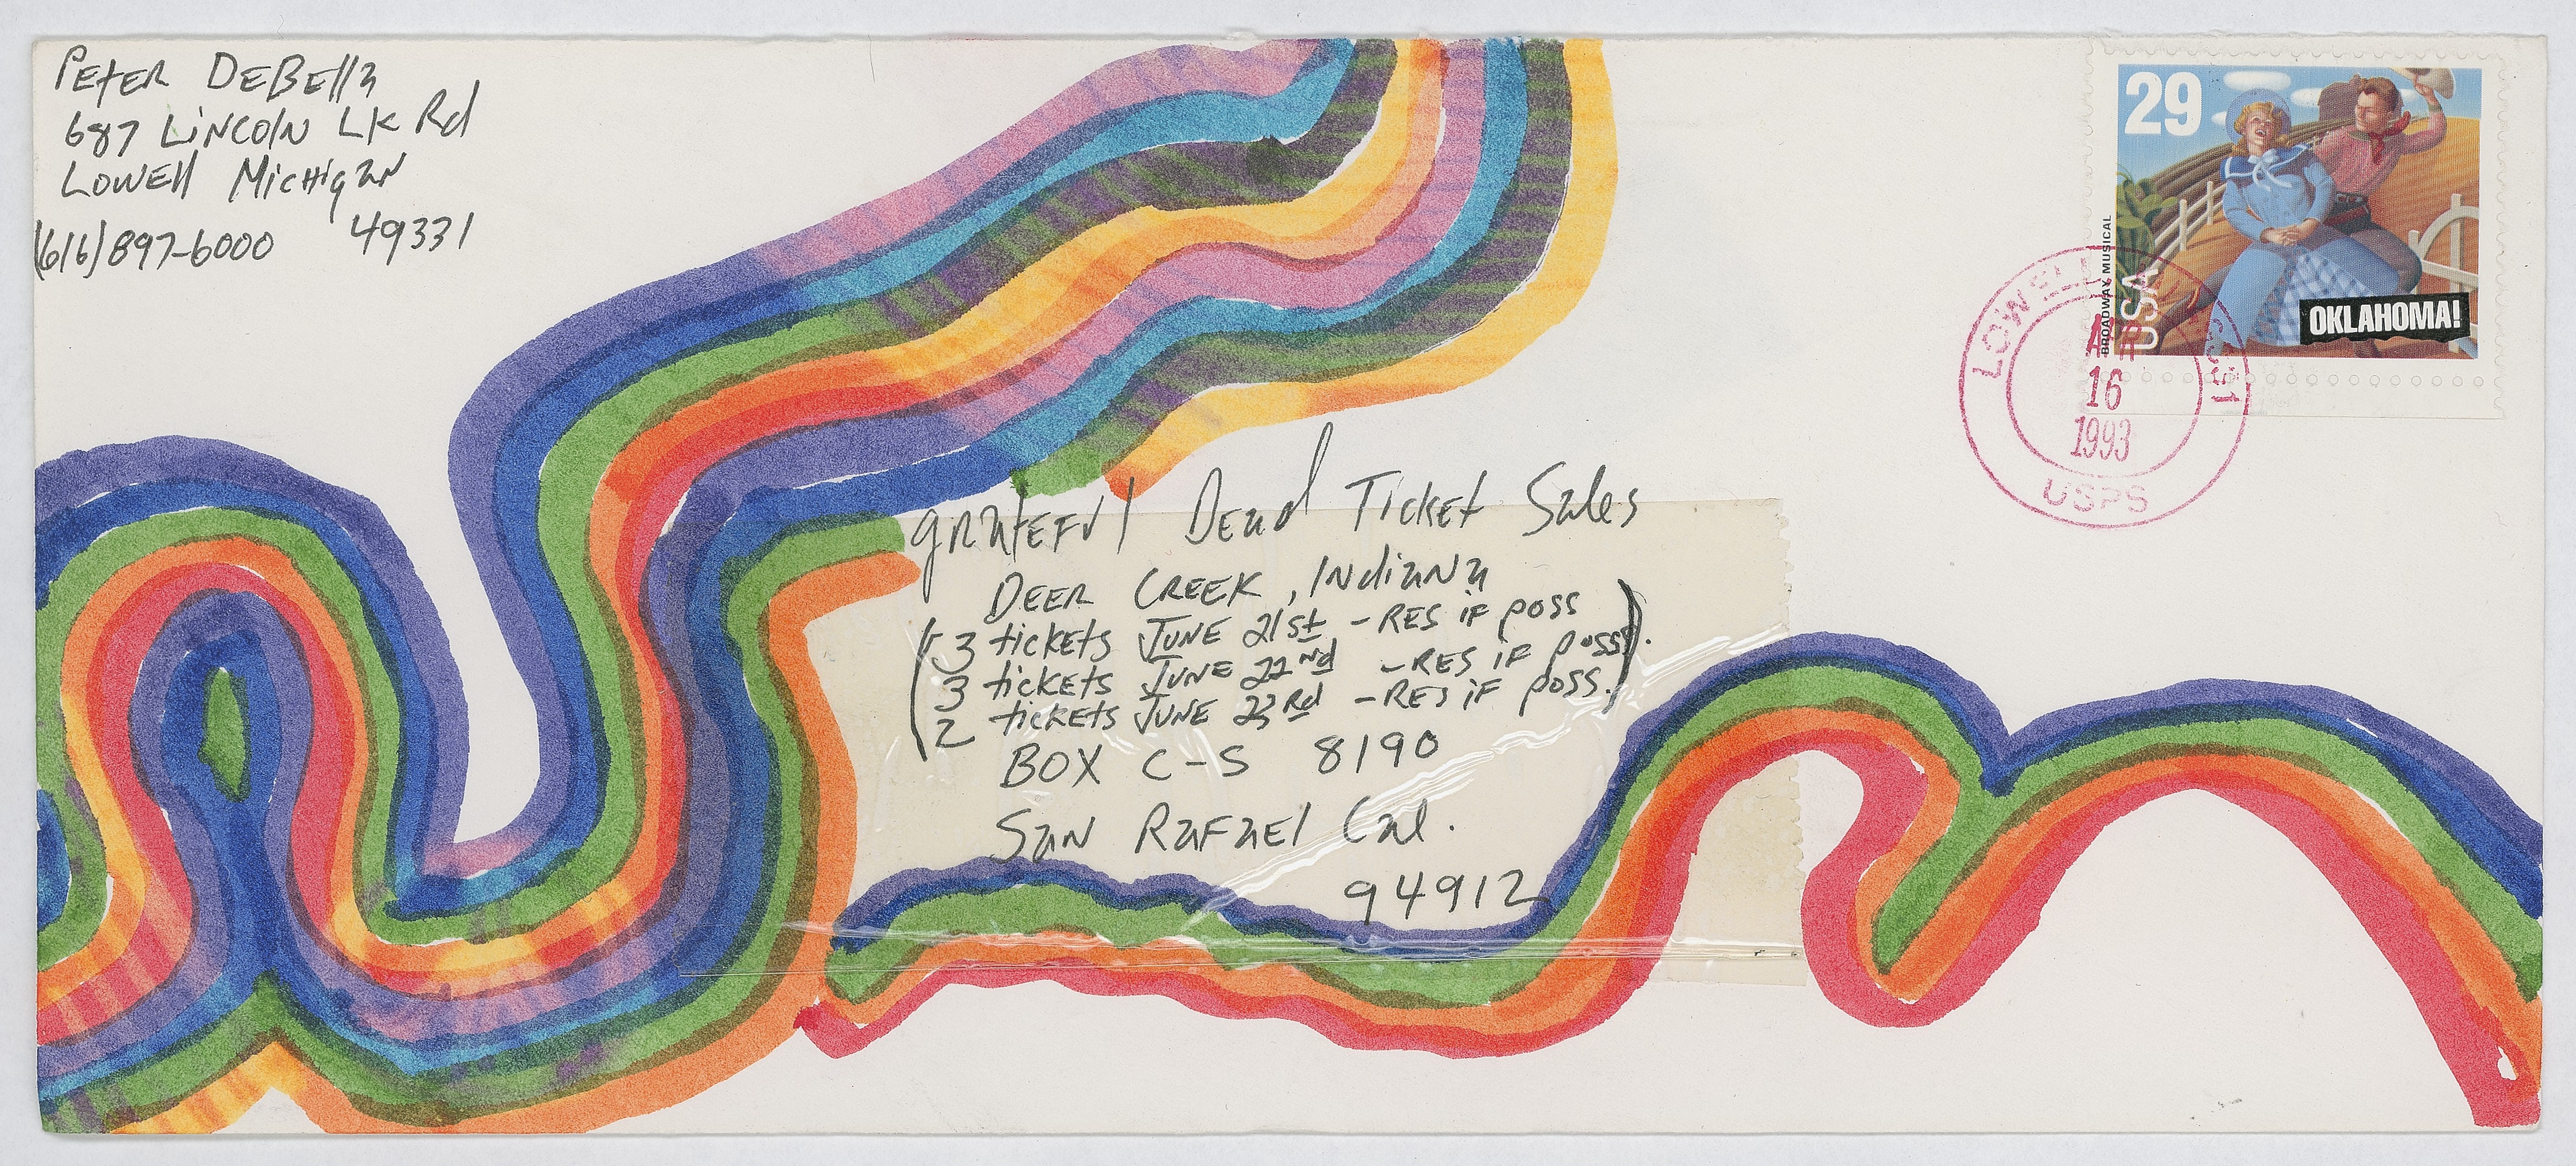 Peter DeBella
687 Lincoln Lk Rd
Lowell Michigan
(616) 897-6000 49331
29
BROADWAY MUSICAL
USA
OKLAHOMA!
LOWELL
16
1993
USPS
Grateful Dead Ticket Sales
Deer Creek, Indiana
(3 tickets June 21st - Res if poss
3 tickets June 22nd - Res if poss).
2 tickets June 23rd - Res if poss.
Box C-S 8190
San Rafael Cal.
94912